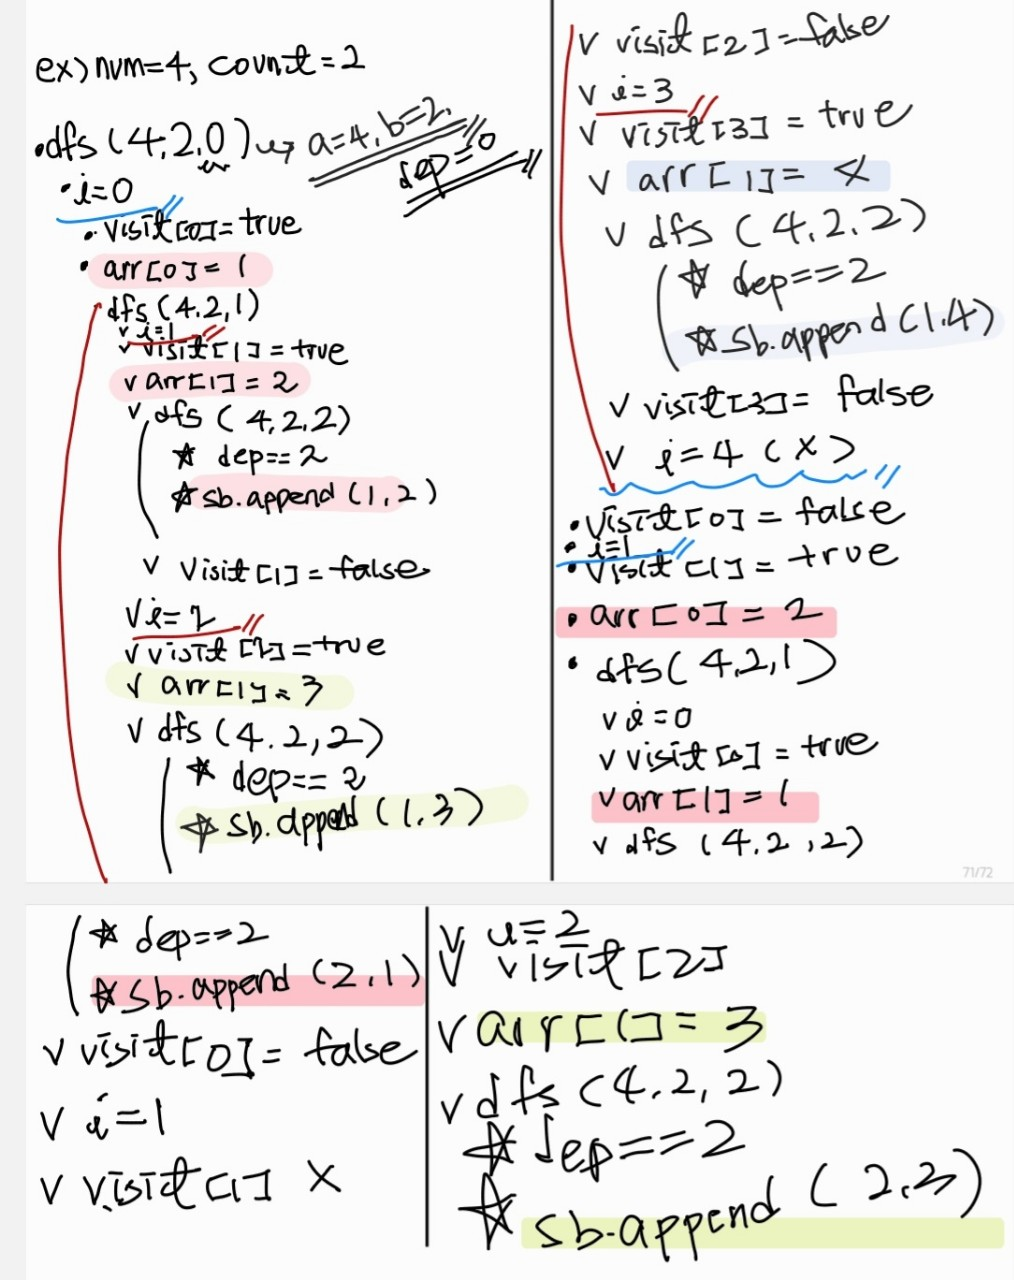 ex) num=4, count=2
•dfs (4,2,0) a=4, b=2,
dep=0
•i=0
•visit[0]=true
•arr[0]=1
dfs(4,2,1)
v i=1
v visit[1]=true
v arr[1]=2
v dfs (4,2,2)
☆ dep==2
☆ sb.append(1,2)
v visit[1]=false
v i=2
v visit[2]=true
v arr[1]=3
v dfs (4.2,2)
☆ dep==2
☆ sb.append (1,3)
v visit[2]=false
v i=3
v visit[3]=true
v arr[1]=4
v dfs (4.2.2)
☆ dep==2
☆ sb.append(1.4)
v visit[3]=false
v i=4 (x)
•visit[0]=false
•i=1
•visit[1]=true
•arr[0]=2
•dfs(4,2,1)
v i=0
v visit[0]=true
v arr[1]=1
v dfs (4.2,2)
71/72
☆ dep==2
☆ sb.append (2,1)
v visit[0]=false
v i=1
v visit[1] x
v i=2
v visit[2]
v arr[1]=3
v dfs (4.2,2)
☆ dep==2
☆ sb.append (2.3)